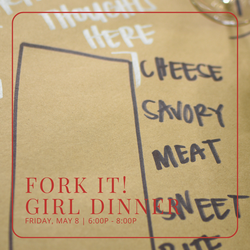 THOUGHTS
HERE
CHEESE
SAVORY
MEAT
SWEET
BITE
FORK IT!
GIRL DINNER
FRIDAY, MAY 8 | 6:00P - 8:00P